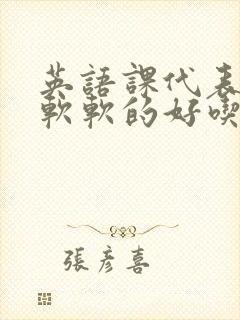 英語課代表
軟軟的好喫
張彥喜